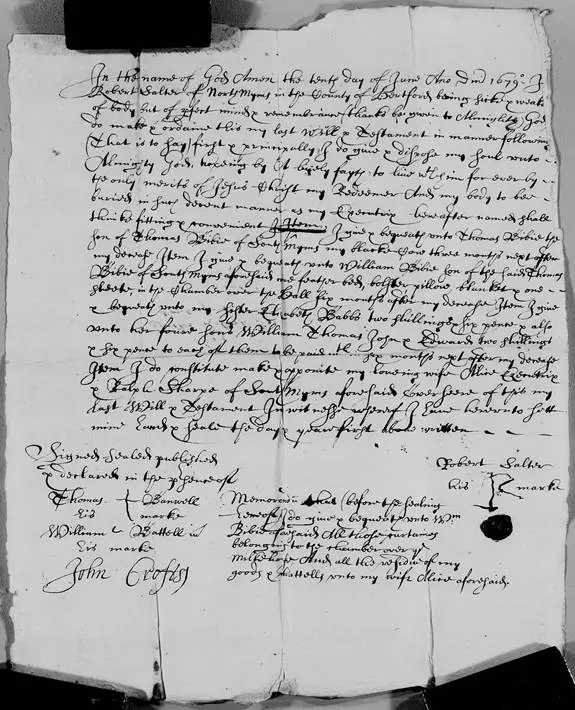 In the name of God Amen the tenth day of June Ano Dni 1679 I
Robert Salter of North Myms in the County of Hertford being sicke & weake
of body but of pfect mind & remembrance thanks be given to Almighty God
do make & ordaine this my last Will & Testament in manner following
That is to say first & principally I do give & dispose my soul unto
Almighty God, hopeing by lively fayth to live with him for ever by
the only merits of Jesus Christ my Redeemer And my body to bee
buried in such decent manner as my Executrix hereafter named shall
thinke fitting & convenient Item I give & bequeath unto Thomas Bibie the
son of Thomas Bibie of South Myms my blacke Cow three months next after
my decease Item I give & bequeath unto William Bibie son of the said Thomas
Bibie of South Myms aforesaid one feather bed, bolster pillow blanket & one
sheete in the Chamber over the Hall six months after my decease Item I give
& bequeath unto my sister Elizabeth Babbe two shillings & six pence & also
unto her foure sons William Thomas John & Edward two shillings
& six pence to each of them to be paid six months next after my decease
Item I do constitute make & appointe my loveing wife Alice Executrix
& Ralph Sharpe of South Myms aforesaid Overseere of this my
last Will & Testament In witnesse whereof I have hereunto sett
mine hand & seale the day & yeare first above written
Signed sealed published
& declared in the psence of
Robert Salter
his marke
Thomas Banwell
his marke
William Battell
his marke
John Crofts
Memorandum that before the sealing
hereof I do give & bequeath unto Wm
Bibie aforesaid All those curtains
belonging to the chamber over ye
Milkehouse And all the residue of my
goods & chattells unto my wife Alice aforesaid